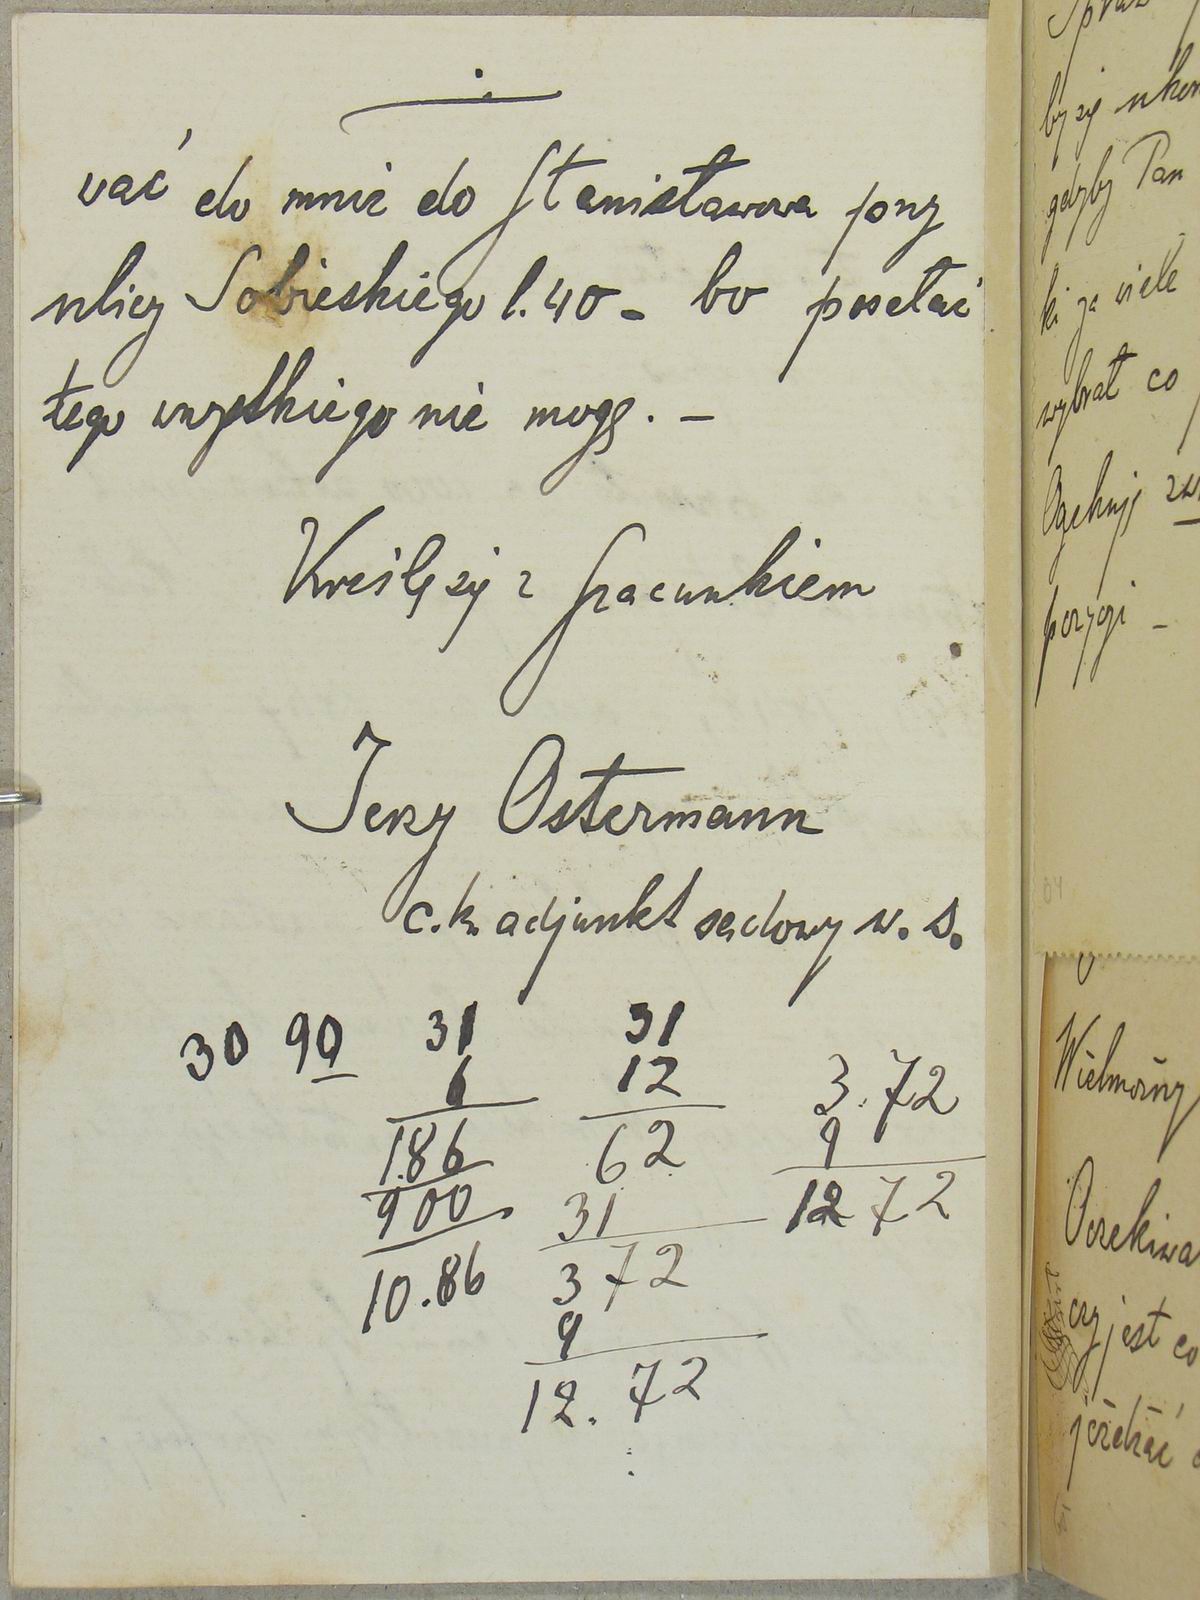 vać do mnie do Stanisławowa przy
ulicy Sobieskiego l. 40 - bo posełać
tego wszystkiego nie mogę. -
Kreślę się z szacunkiem
Jerzy Ostermann
c.k. adjunkt sądowy w. s.
30 90 31 31
6 12 3.72
186 62 9
900 31 12 72
10.86 372
9
12.72
by się
gdyby Pan
ki za wiele
wybrał co
Wielmożny
Oczekiwa
czy jest co